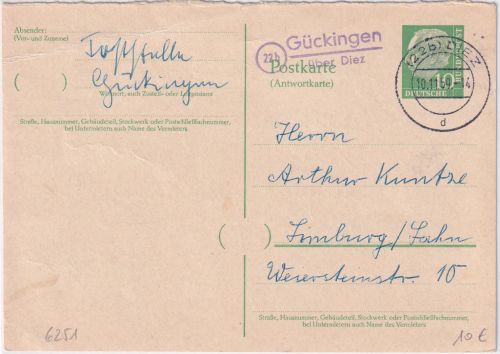 Absender:
(Vor- und Zuname)
Poststelle
Gückingen
Wohnort, auch Zustell- oder Leitpostamt
Straße, Hausnummer, Gebäudeteil, Stockwerk oder Postschließfachnummer,
bei Untermietern auch Name des Vermieters
22b
Gückingen
über Diez
Postkarte
(Antwortkarte)
DIEZ
10
DEUTSCHE
BUNDESPOST
d
Herrn
Arthur Kuntze
Limburg/Lahn
Weiersteinstr. 10
Straße, Hausnummer, Gebäudeteil, Stockwerk oder Postschließfachnummer,
bei Untermietern auch Name des Vermieters
6251
10 €